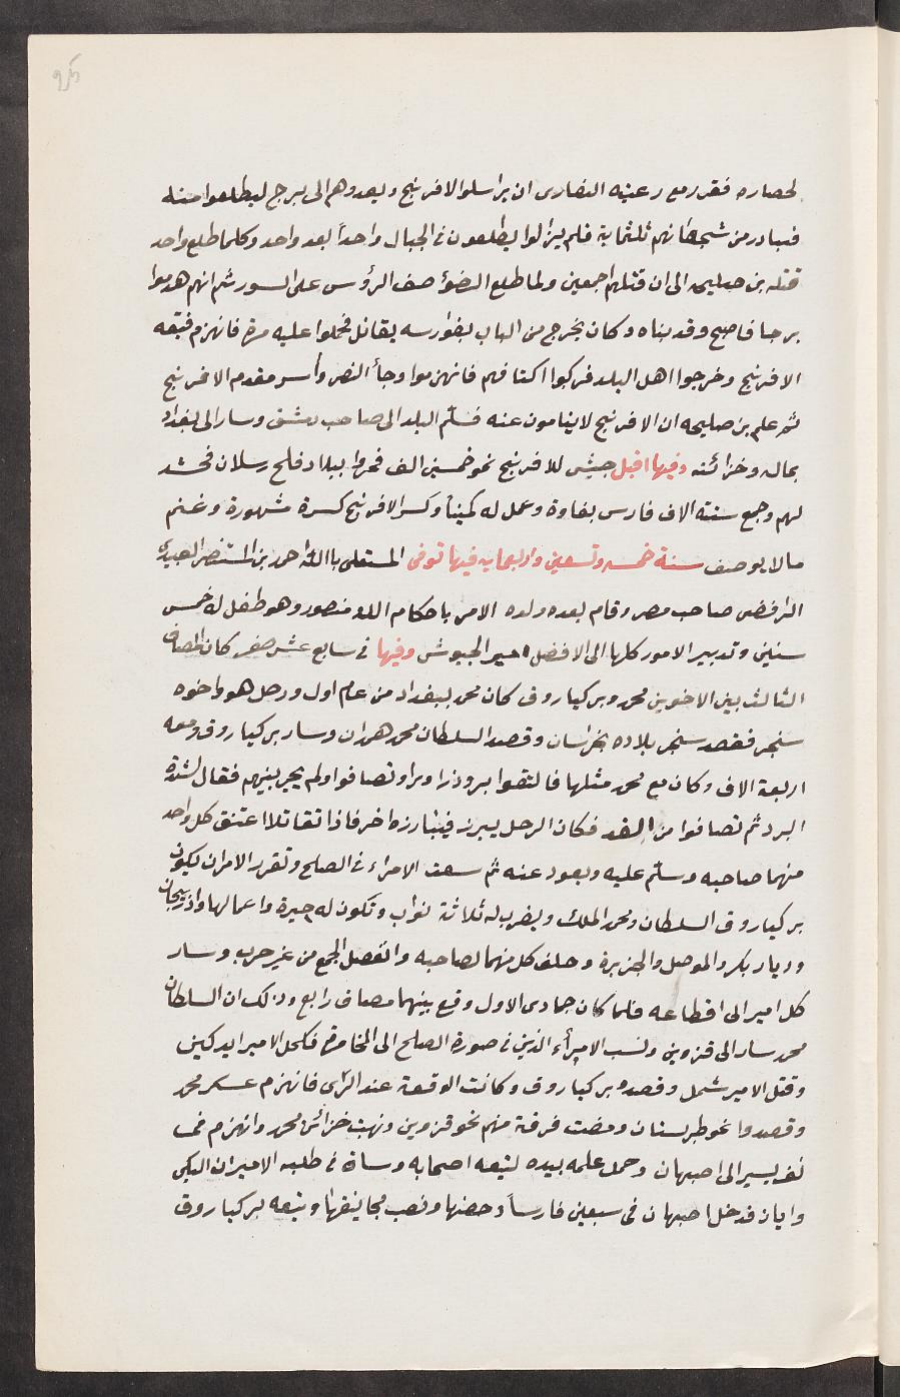 لحصاره فقرر مع رعيته النصارى ان يراسلوا الافرنج ويعدوهم الى برج ليطلعوا منه
فبادر من شجعانهم ثلثماية فلم يزالوا يطلعون في الحبال واحداً بعد واحد وكلما طلع واحد
قتله بن صليحه الى ان قتلهم اجمعين ولما طلع الضوء صف الرؤس على السور ثم انهم هدموا
برجا فاصبح وقد بناه وكان يخرج من الباب بفوارسه يقاتل فحملوا عليه مرة فانهزم فتبعه
الافرنج وخرجوا اهل البلد فركبوا اكتافهم فانهزموا وجأ النصر وأسر مقدم الافرنج
ثم علم بن صليحه ان الافرنج لا ينامون عنه فسلّم البلد الى صاحب دمشق وسار الى بغداد
بماله وخزائنه وفيها اقبل جيش للافرنج نحو خمسين الف فمروا ببلاد قلج رسلان فحشد
لهم وجمع ستة الاف فارس بغاوة وعمل له كميناً وكسر الافرنج كسرة مشهورة وغنم
مالا يوصف سنة خمسه وتسعين واربعمايه فيها توفى المستعلى باالله احمد بن المستنصر العبيدى
الرافضى صاحب مصر وقام بعده ولده الامر باحكام الله منصور وهو طفل له خمس
سنين وتدبير الامور كلها الى الافضل امير الجيوش وفيها في سابع عشر صفر كان المصاف
الثالث بين الاخوين محمد وبركياروق كان محمد ببغداد من عام اول ورحل هو واخوه
سنجر فقصد سنجر بلاده بخراسان وقصد السلطان محمد همدان وسار بركياروق ومعه
اربعة الاف وكان مع محمد مثلها فالتقوا بروذراور وتصافوا ولم يجر بينهم فقال لشدة
البرد ثم تصافوا من الغد فكان الرجل يبرز فيبارزه اخر فاذا تقاتلا اعتنق كل واحد
منهما صاحبه وسلّم عليه ويعود عنه ثم سعت الامراء في الصلح وتقرر الامر ان يكون
بركياروق السلطان ومحمد الملك ويضرب له ثلاثة نواب وتكون له جيرة واعمالها واذربيجان
وديار بكر والموصل والجزيرة وحلف كل منهما لصاحبه وانفصل الجمع من غير حرب وسار
كل امير الى اقطاعه فلما كان جمادى الاول وقع بينهما مصاف رابع وذلك ان السلطان
محمد سار الى قزوين ونسب الامرأء الذين في صورة الصلح الى المخامرة فكحل الامير ايدكين
وقتل الامير شمل وقصده بركياروق وكانت الوقعة عند الرى فانهزم عسكر محمد
وقصدوا نحو طبرستان ومضت فرقة منهم نحو قزوين ونهبت خزائن محمد وانهزم في
نفر يسير الى اصبهان وحمل علمه بيده ليتبعه اصحابه وساق في طلبه الاميران البكى
واياز فدخل اصبهان في سبعين فارساً وحصنها ونصب مجانيقها وتبعه بركياروق